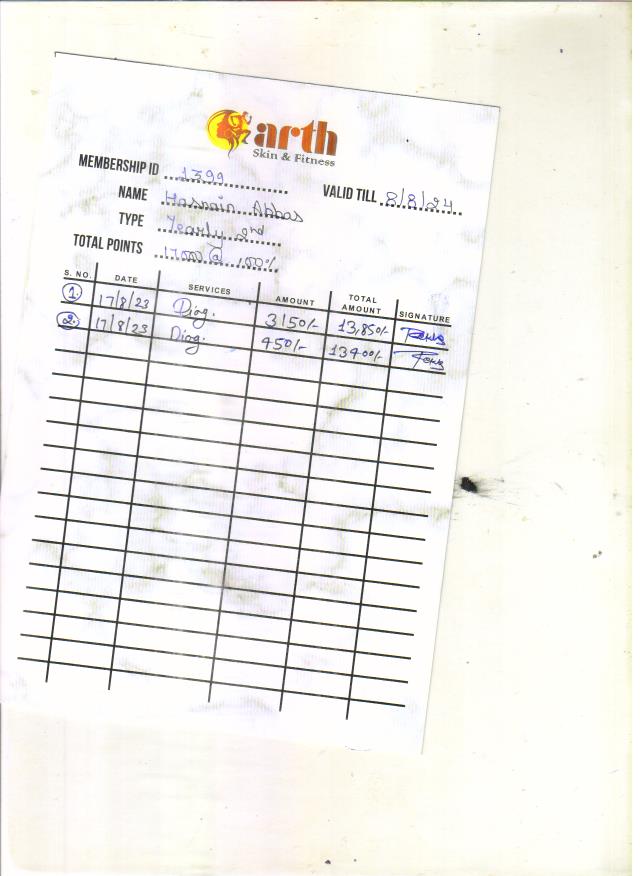 arth
Skin & Fitness
MEMBERSHIP ID 1399
VALID TILL 8/8/24
NAME Hasnain Abbas
TYPE Yearly 2nd
TOTAL POINTS 17000 @ 100%
S. NO. DATE SERVICES AMOUNT TOTAL AMOUNT SIGNATURE
1. 17/8/23 Diag. 3150/- 13,850/-
2. 17/8/23 Diag. 450/- 13400/-